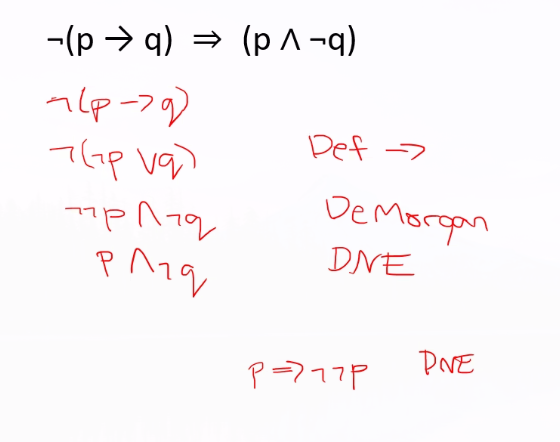 ¬(p → q) ⇒ (p ∧ ¬q)
¬(p → q)
¬(¬p ∨ q) Def →
¬¬p ∧ ¬q DeMorgan
p ∧ ¬q DNE
p ⇒ ¬¬p DNE